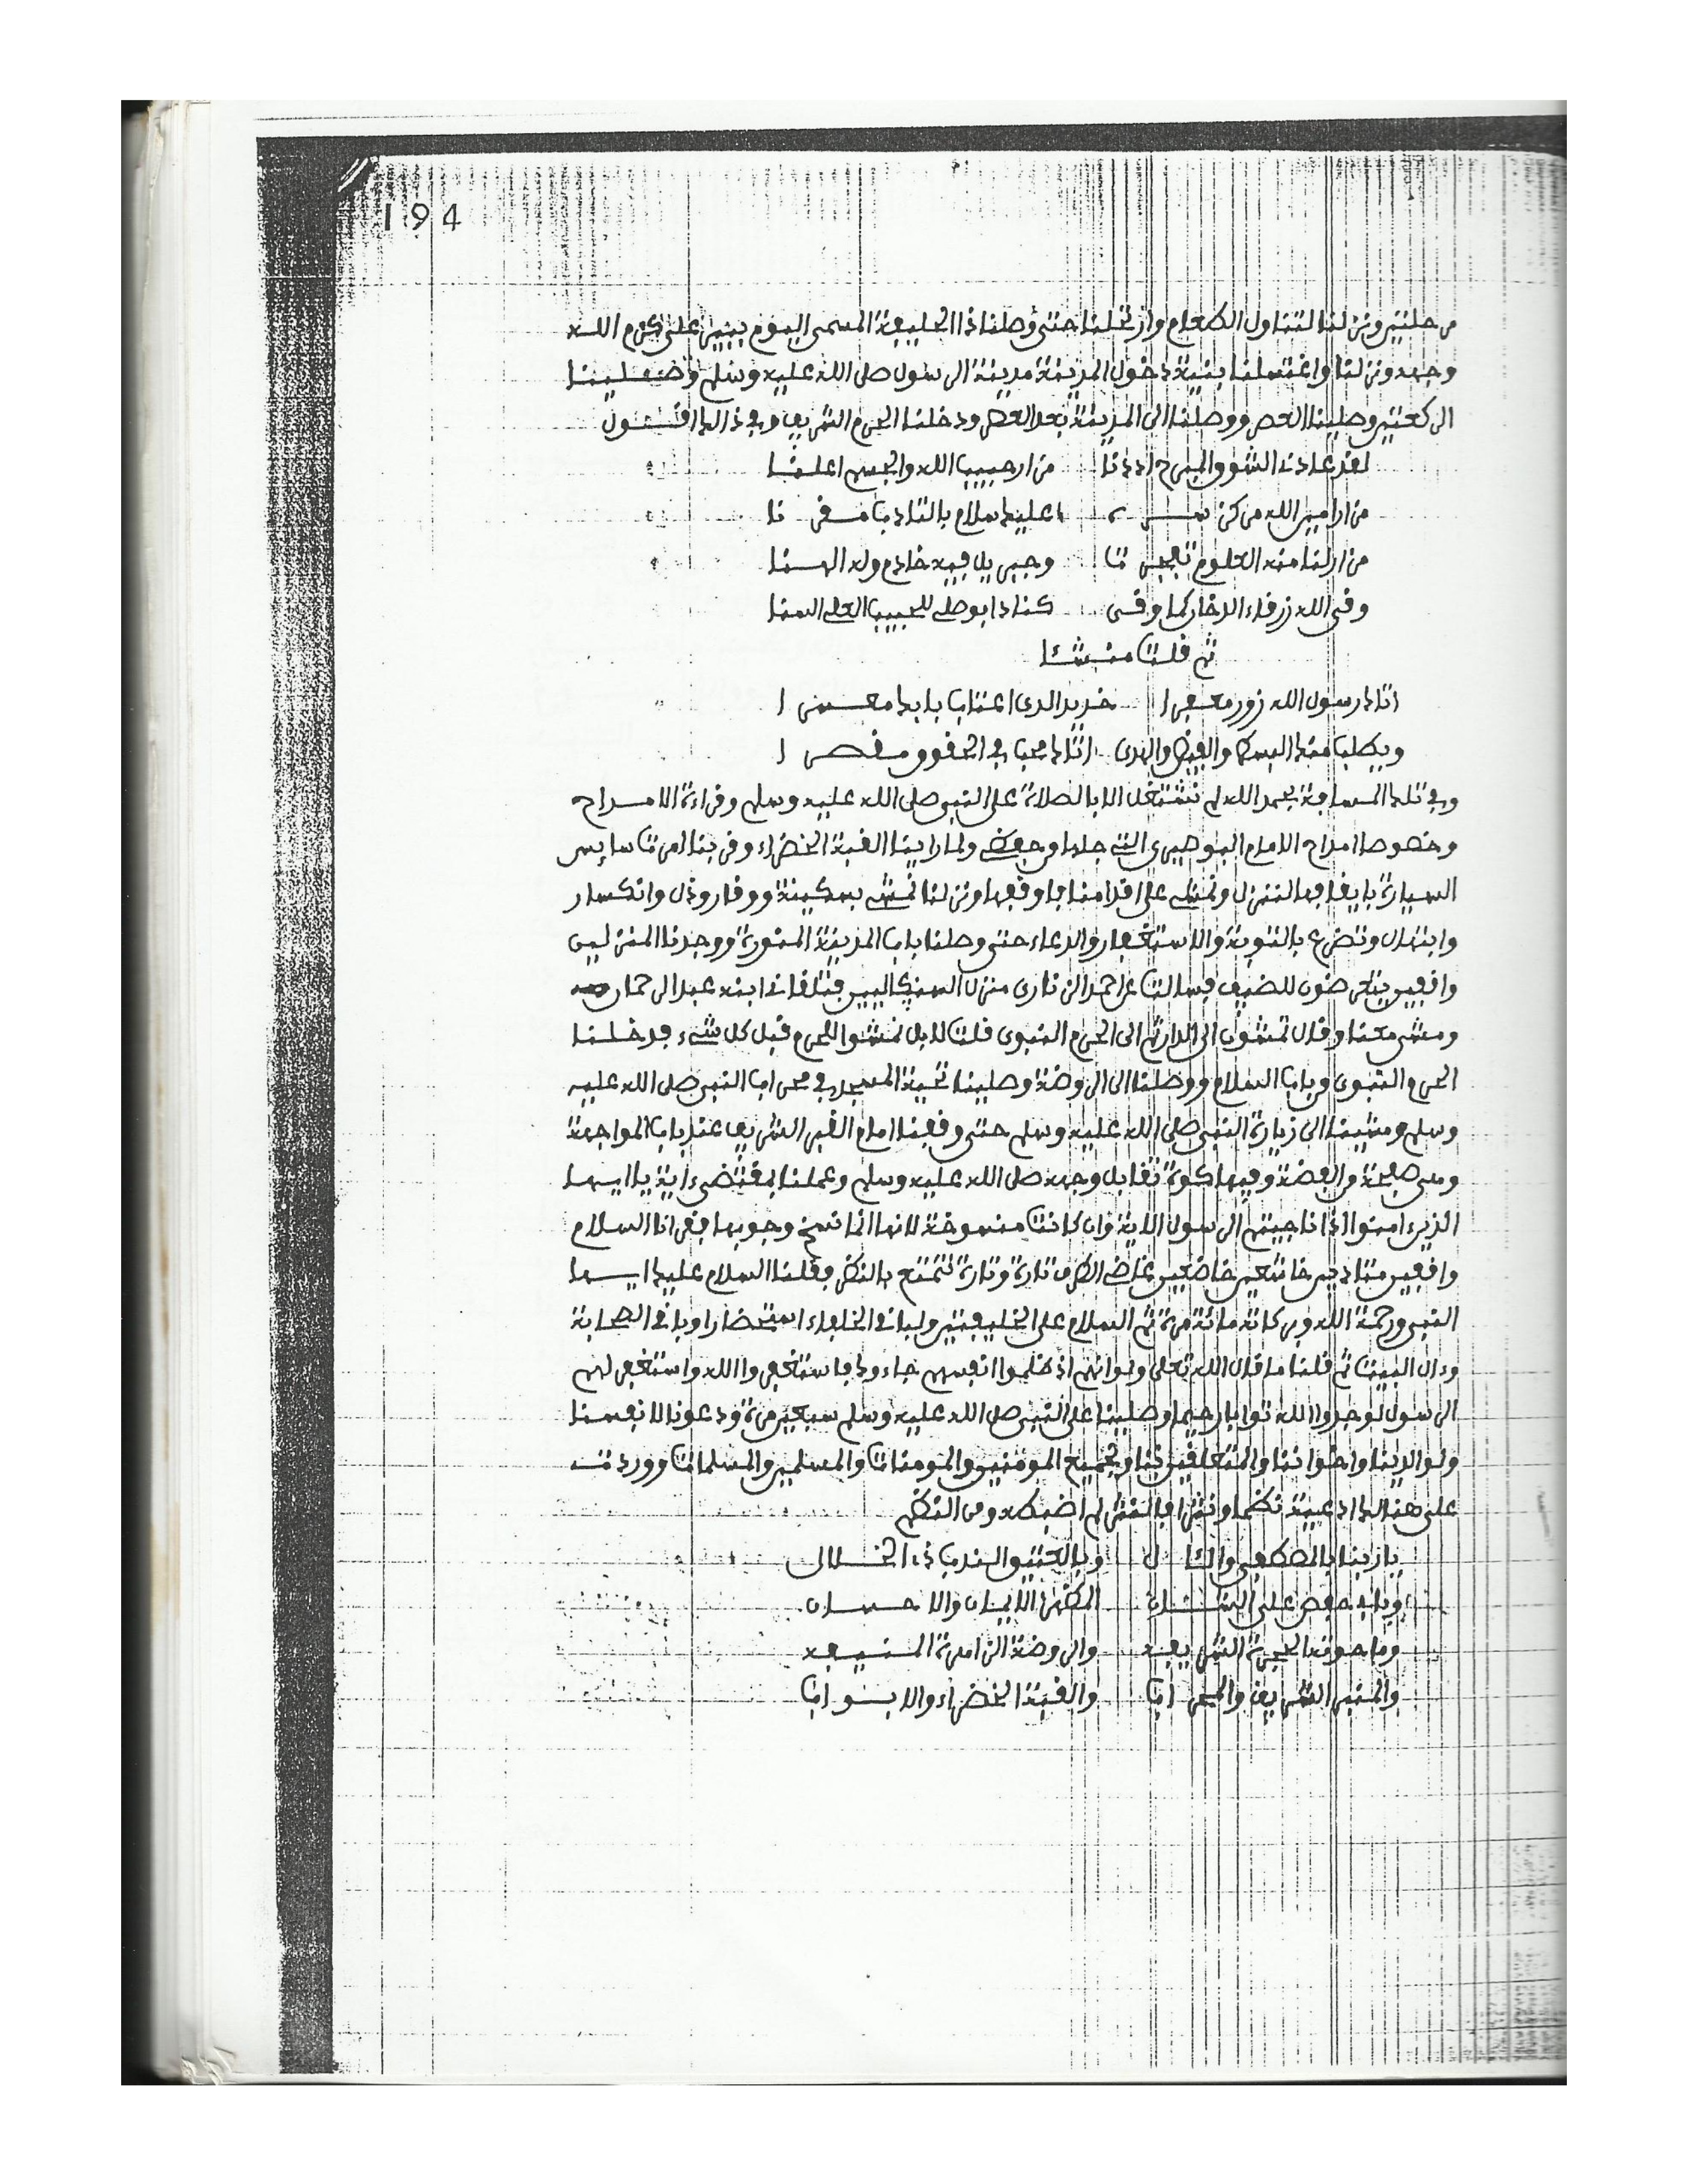 194
مرحلتين ونزلنا لتناول الطعام وارتحلنا حتى وصلنا ذا الحليفة المسمى اليوم ببير على كرم الله
وجهه ونزلنا واغتسلنا بنية دخول المدينة مدينة الرسول صلى الله عليه وسلم وصلينا
الركعتين وصلينا العصر ووصلنا الى المدينة بعد العصر ودخلنا الحرم الشريف وفي ذالك اقول
لقد عادنا الشوق المبرح اذ دنا مزار حبيب الله والجسم اعلنا
مزار امين الله من كن
مزار لنا منه العلوم تفجرتا وجبريل فيه خادم وله الهنا
وفى الله زرقاء الدخار كما وفى كنادا بوصل للحبيب
ثم قلت منشئا
اتاك رسول الله زور معفرا خديد الذى اعتاب بابك معسرا
ويطلب منك البسط والفيض والهدى اتاك محبا في الحقوق مقصرا
وفي تلك المسافة بحمد الله لم نشتغل الا بالصلاة على النبي صلى الله عليه وسلم وقراءة الامداح
وخصوصا امداح الامام البوصيرى التي جلها وحفظى ولما راينا القبة الخضراء وقربنا امرتا سايس
السيارة بايقافها لننزل ونمشى على اقدامنا فاوقفها ونزلنا نمشى بسكينة ووقار وذل وانكسار
وابتهال وتضرع بالتوبة والاستغفار والدعاء حتى وصلنا باب المدينة المنورة ووجدنا المنزلين
واقفين يتعرضون للضيف فسالت عن احمد الزنارى منزل السنكاليين فتلقانى ابنه عبد الرحمان
ومشى معنا وقال تمشون الى الدار ثم الى الحرم النبوى قلت لا بل نمشوا للحرم قبل كل شىء فدخلنا
الحرم النبوى من باب السلام ووصلنا الى الروضة وصلينا تحية المسجد في محراب النبي صلى الله عليه
وسلم ومشينا الى زيارة النبى صلى الله عليه وسلم حتى وقفنا امام القبر الشريف عند باب المواجهة
وهى صفيحة من الفضة وفيها كوة تقابل وجهه صلى الله عليه وسلم وعملنا بمقتضى ءاية يا ايها
الذين ءامنوا اذا ناجيتم الرسول الاية وان كانت منسوخة لانها انما نسخ وجوبها فقرانا السلام
واقفين متادبين خاشعين خاضعين غاضى الطرف تارة وتارة نتمتع بالنظر وقلنا السلام عليك ايها
النبى ورحمة الله وبركاته مائة مرة ثم السلام على الخليفتين ولباقى الخلفاء استحضارا وباقى الصحابة
وءال البيت ثم قلنا ما قال الله تعلى ولو انهم اذ ظلموا انفسهم جاءوك فاستغفروا الله واستغفر لهم
الرسول لوجدوا الله توابا رحيما وصلينا على النبى صلى الله عليه وسلم سبعين مرة ودعونا لانفسنا
ولوالدينا واخواننا والمتعلقين بنا ولجميع المومنين والمومنات والمسلمين والمسلمات ووردت
على هنالك ادعية نظما ونثرا فالنثر لم اضبطه ومن النظم
يا ربنا بالمصطفى والال وبالعتيق الندب ذى الخلال
وبابى حفص على الشان المظهر الايمان والاحسان
وما حوته الحجرة الشريفه والروضة الزاهرة المنيفه
والمنبر الشريف والمحراب والقبة الخضراء والابواب